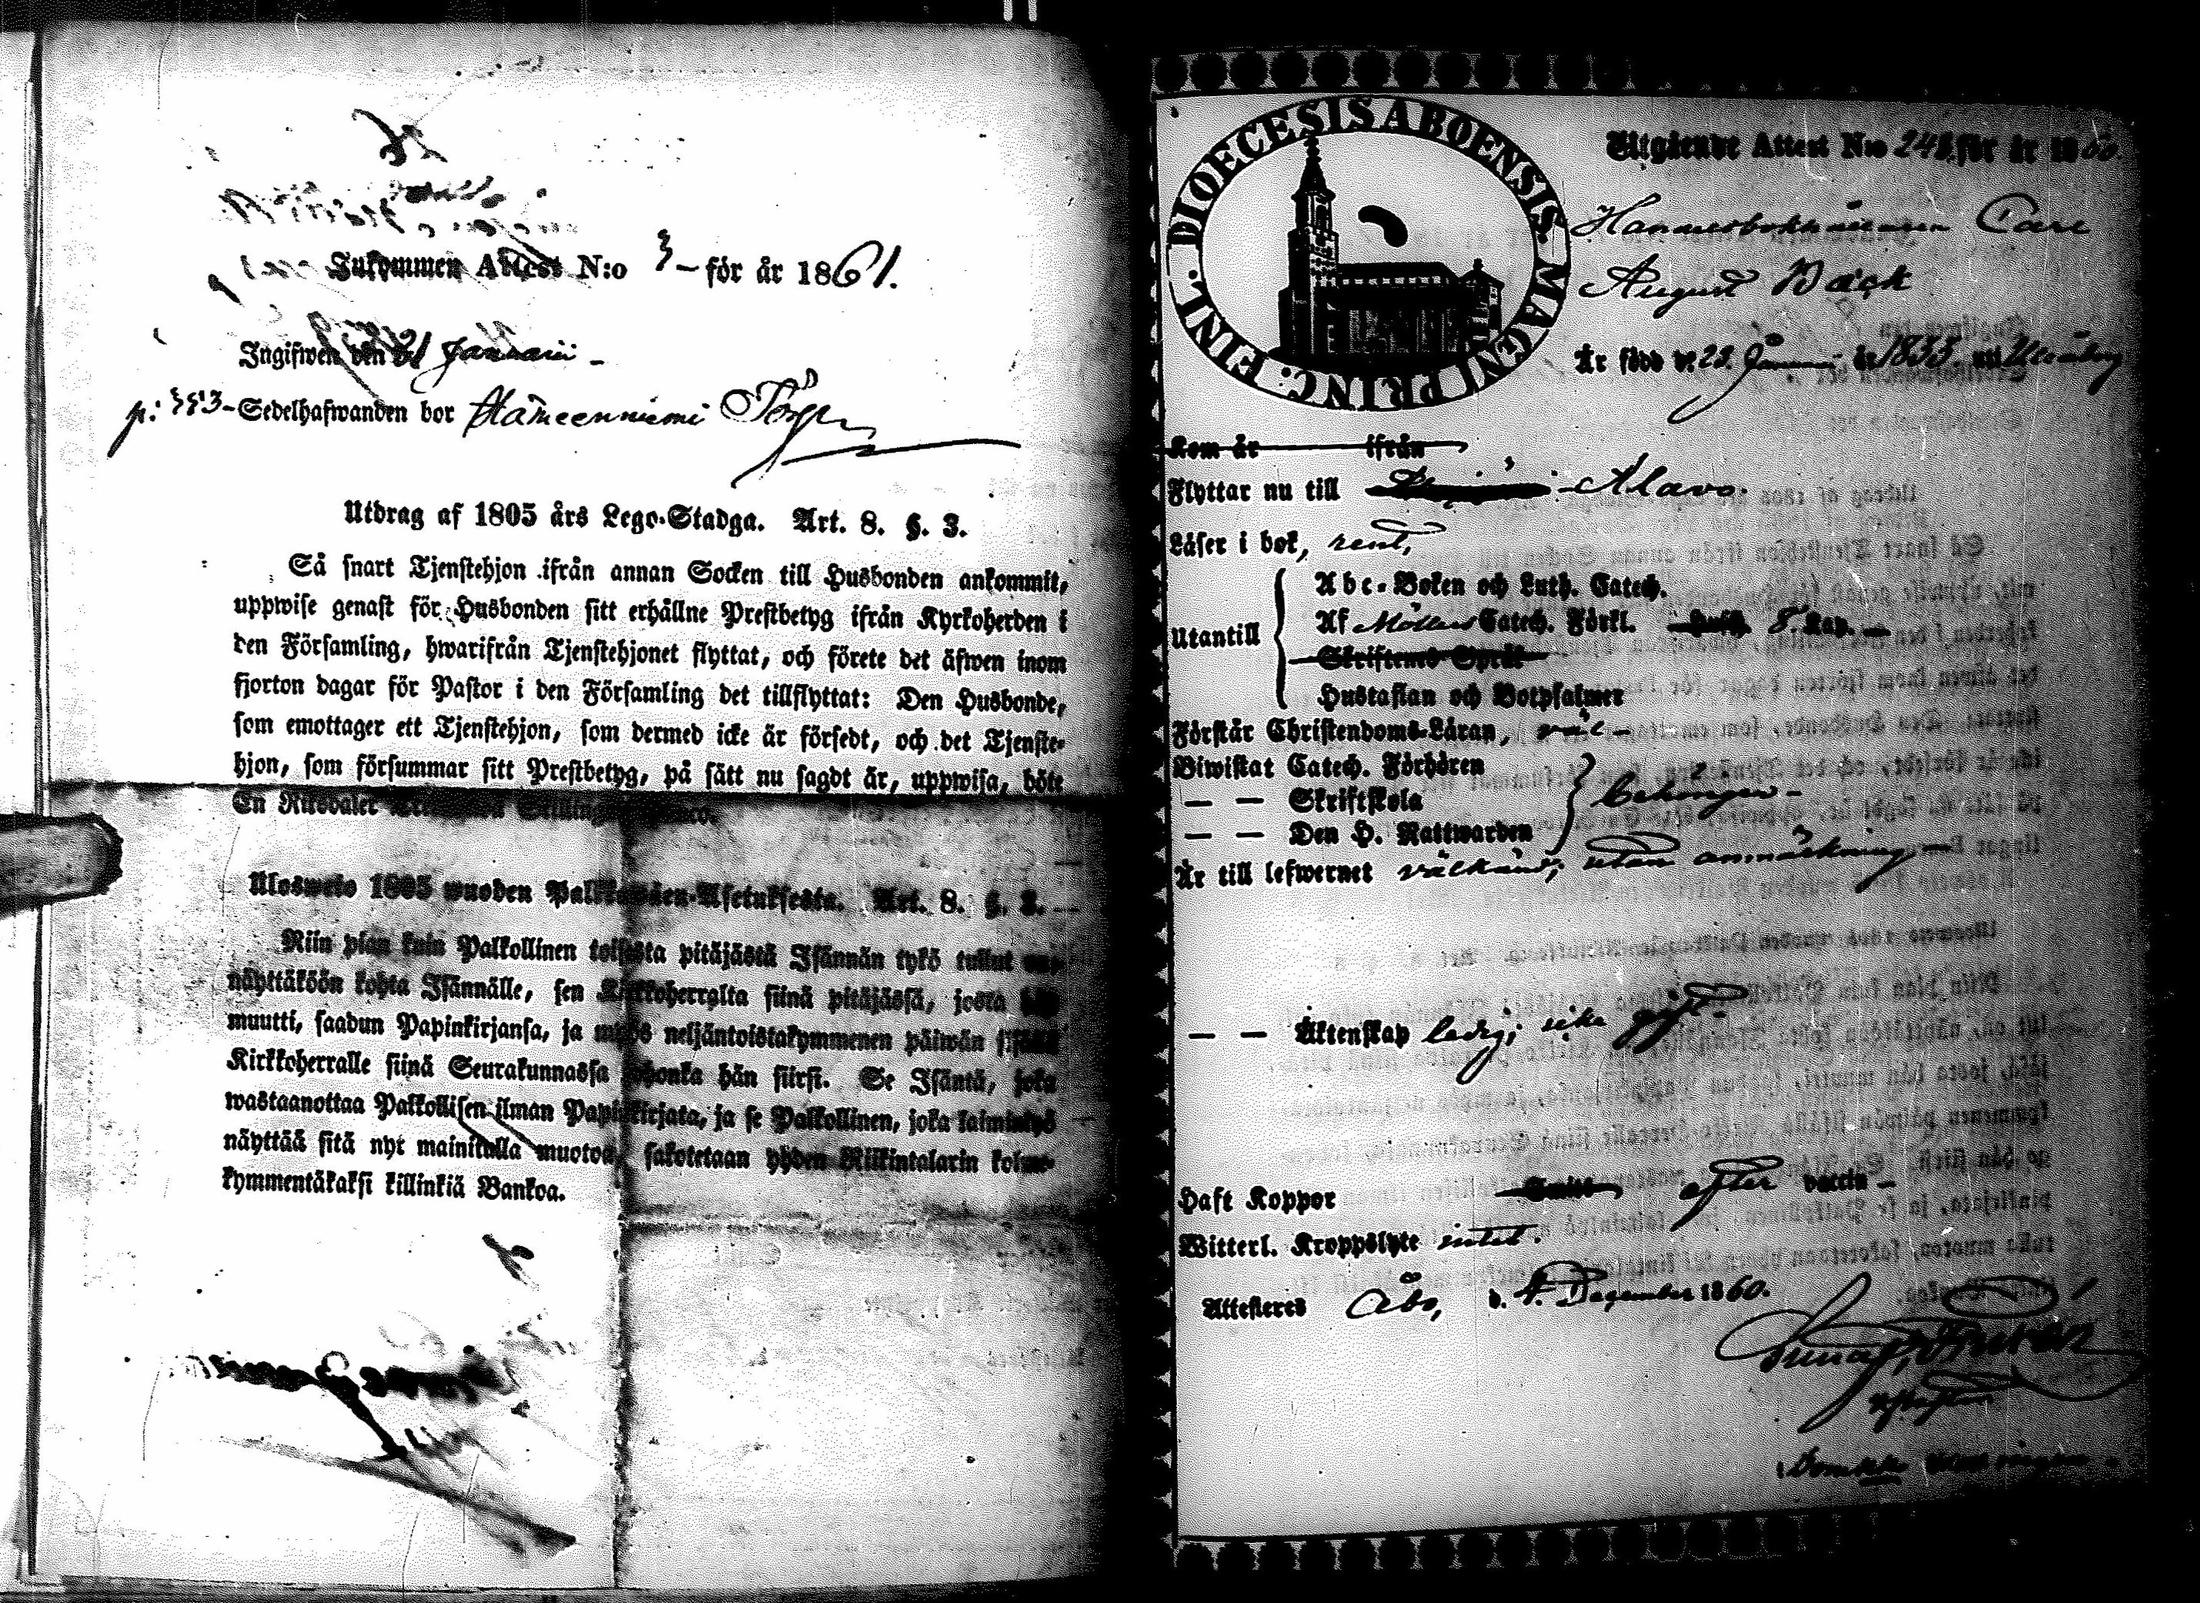 Inkommen Attest N:o 3 – för år 1861.
Ingifwen den 21 Januarii –
p: 553 – Sedelhafwanden bor Hämeenniemi Torp
Utdrag af 1805 års Lego-Stadga. Art. 8. §. 3.
Så snart Tjenstehjon ifrån annan Socken till Husbonden ankommit,
uppwise genast för Husbonden sitt erhållne Prestbetyg ifrån Kyrkoherden i
den Församling, hwarifrån Tjenstehjonet flyttat, och förete det äfwen inom
fjorton dagar för Pastor i den Församling det tillflyttat: Den Husbonde,
som emottager ett Tjenstehjon, som dermed icke är försedt, och det Tjenste-
hjon, som försummar sitt Prestbetyg, på sätt nu sagdt är, uppwisa, böte
En Riksdaler
Ulosweto 1805 wuoden Palkkawäen-Asetuksesta. Art. 8. §. 3.
Niin pian kuin Palkollinen toisesta pitäjästä Isännän tykö tullut on,
näyttäköön kohta Isännälle, sen Kirkkoherralta siinä pitäjässä, josta hän
muutti, saadun Papinkirjansa, ja myös neljäntoistakymmenen päiwän sisällä
Kirkkoherralle siinä Seurakunnassa johonka hän siirsi. Se Isäntä, joka
wastaanottaa Palkollisen ilman Papinkirjata, ja se Palkollinen, joka laiminlyö
näyttää sitä nyt mainitulla muotoa, sakotetaan yhden Riikintalarin kolme-
kymmentäkaksi killinkiä Bankoa.
DIOECESIS ABOENSIS. MAGNI PRINC: FINL.
Utgående Attest N:o 248 för år 1860.
Handelsbokhållaren Carl
August Bäck
Är född d. 23. Januari år 1835, uti Uleåborg
Kom år ifrån
Flyttar nu till Alavo.
Läser i bok, rent,
Utantill
Abc-Boken och Luth. Catech.
Af Möllers Catech. Förkl. 8. Kap.
Skriftens Språk
Hustaflan och Botpsalmer
Förstår Christendoms-Läran, väl –
Biwistat Catech. Förhören
— — Skriftskola
— — Den H. Nattwarden
behörigen –
Är till lefwernet välkänd, utan anmärkning –
— — Äktenskap ledig; icke gift.
Haft Koppor Smitt efter vaccin –
Witterl. Kroppslyte intet.
Attesteras Åbo, d. 4. December 1860.